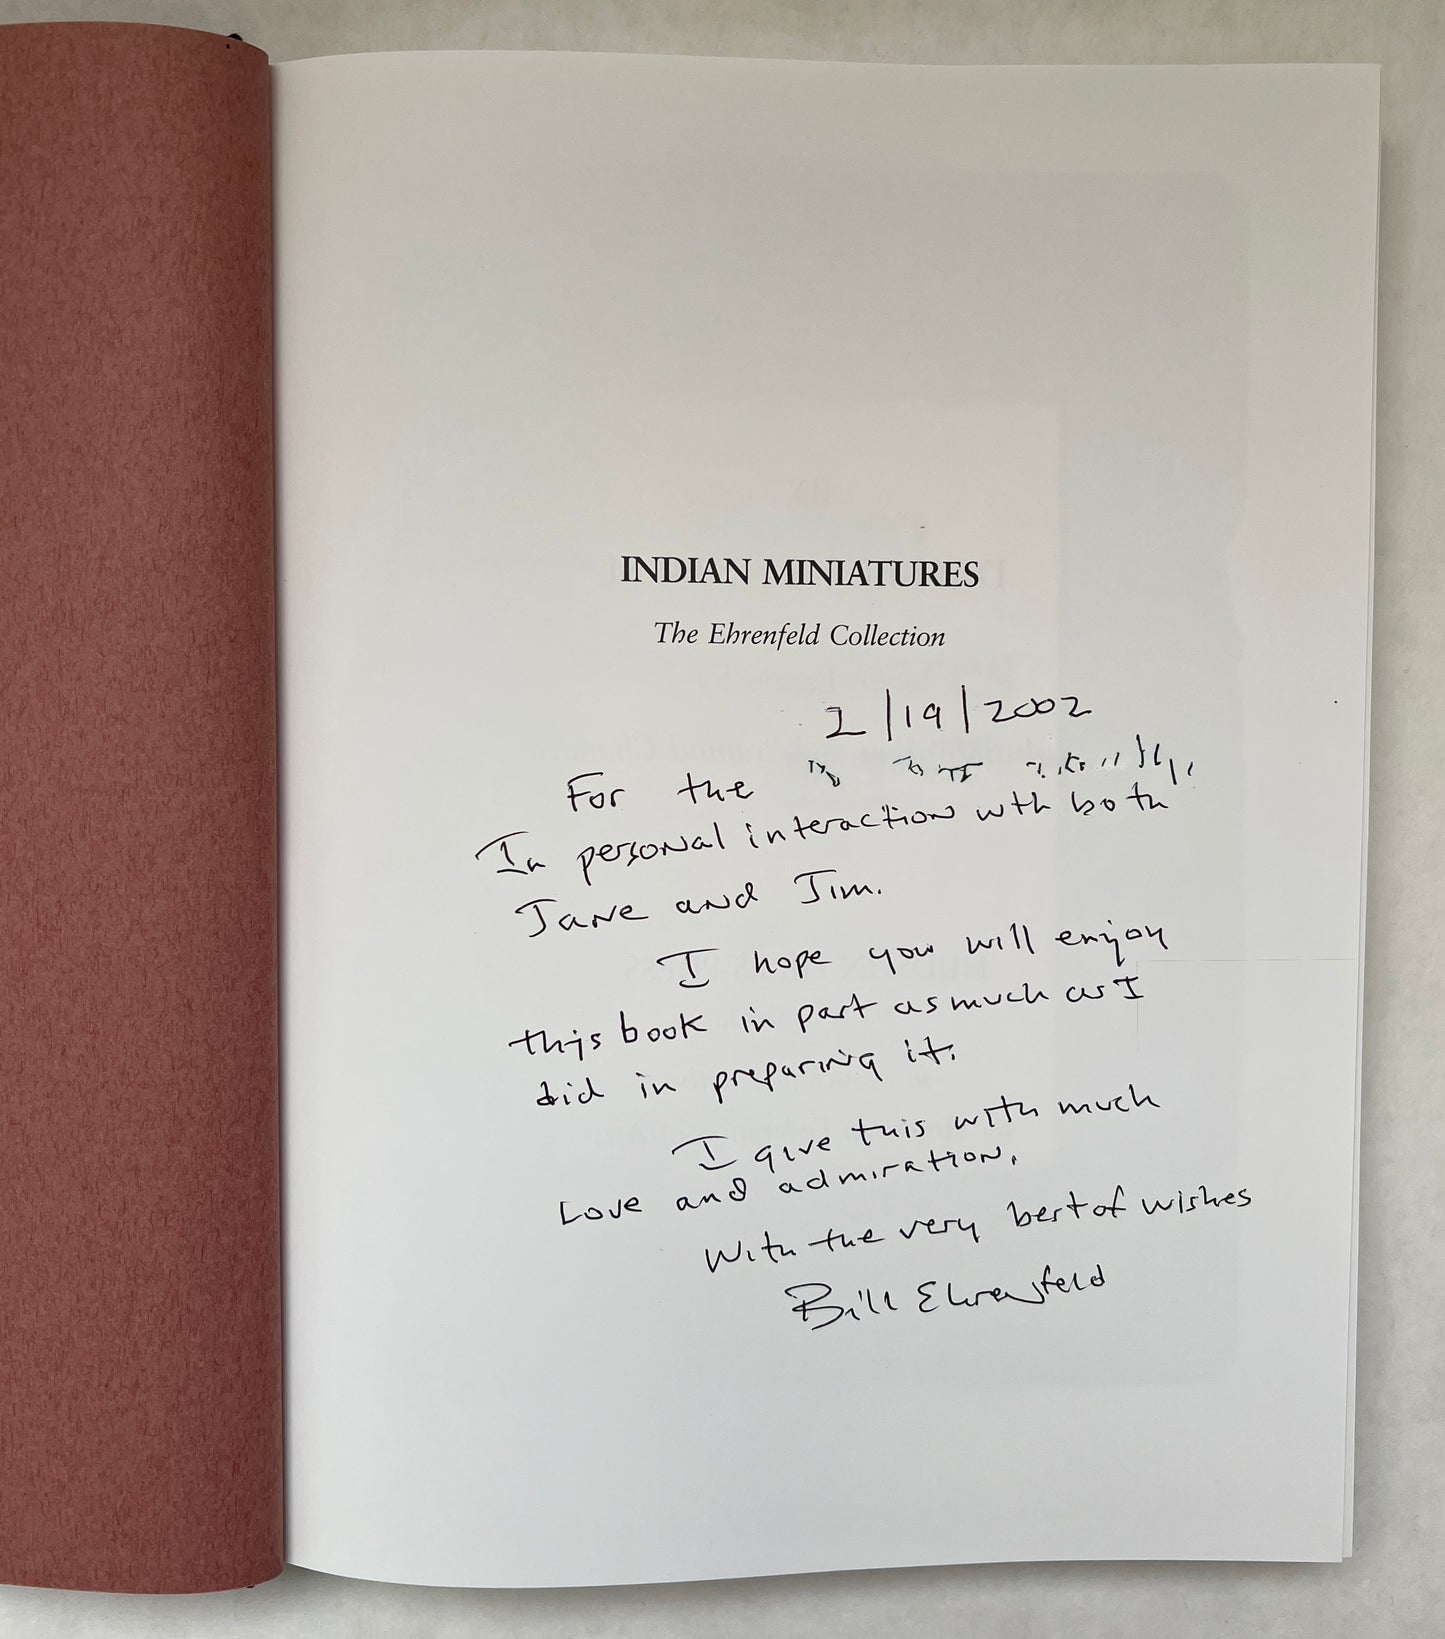 INDIAN MINIATURES
The Ehrenfeld Collection
2/19/2002
For the
In personal interaction with both
Jane and Jim.
I hope you will enjoy
this book in part as much as I
did in preparing it.
I give this with much
Love and admiration.
With the very best of wishes
Bill Ehrenfeld